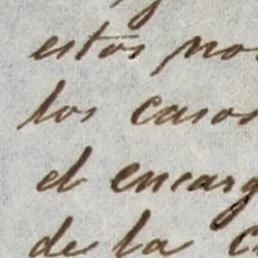 estos no
los casos
el encarg
de la c